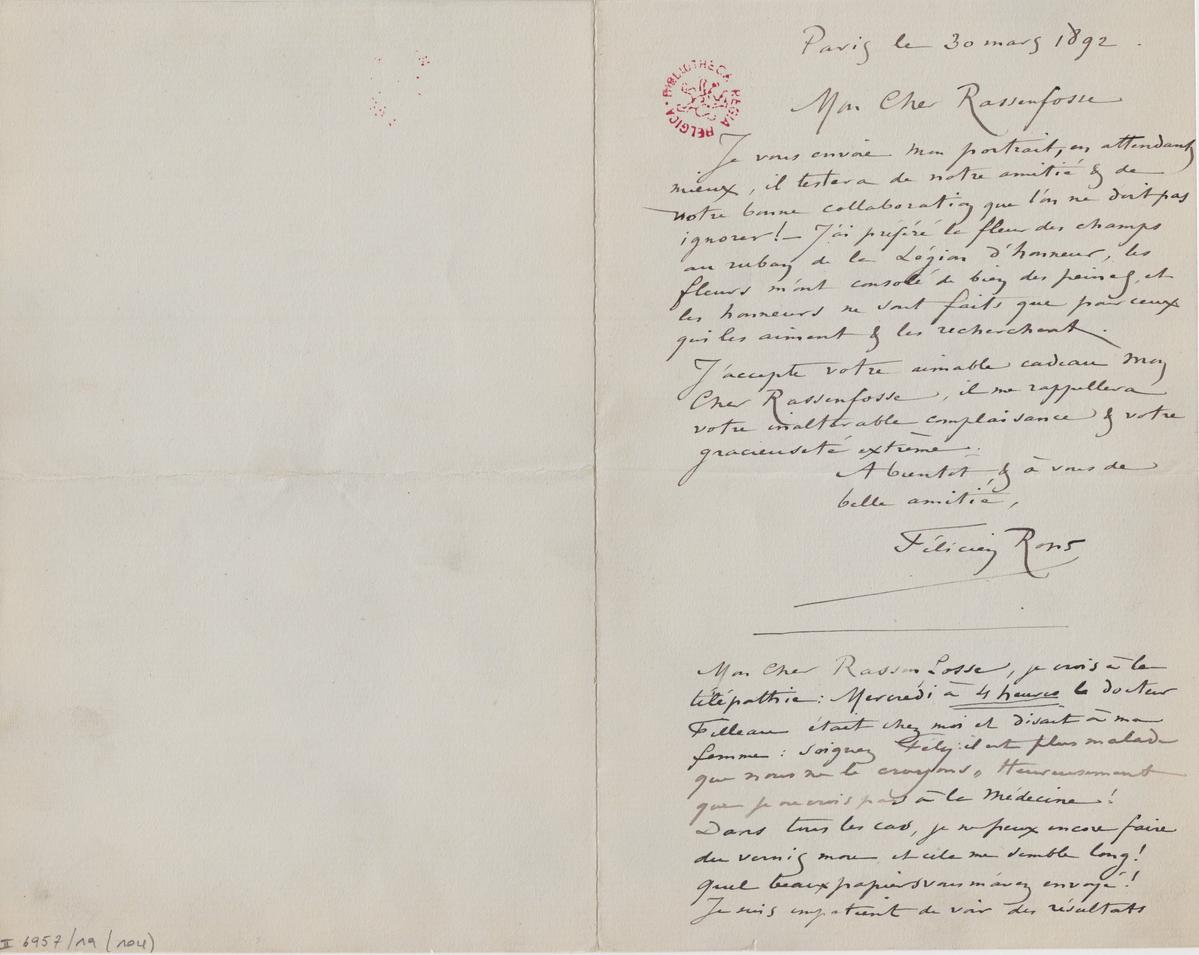 Paris le 30 mars 1892.
BIBLIOTHECA REGIA BELGICA
Mon Cher Rassenfosse
Je vous envoie mon portrait, en attendant
mieux, il testera de notre amitié & de
notre bonne collaboration que l'on ne doit pas
ignorer! – J'ai préféré la fleur des champs
au ruban de la Légion d'honneur, les
fleurs m'ont consolé de bien des peines, et
les honneurs ne sont faits que pour ceux
qui les aiment & les recherchent.
J'accepte votre aimable cadeau mon
Cher Rassenfosse, il me rappellera
votre inaltérable complaisance & votre
gracieuseté extrème.
A bientot & à vous de
belle amitié,
Félicien Rops
Mon Cher Rassenfosse, je crois à la
télépathie: Mercredi à 4 heures le docteur
Filleau était chez moi et disait à ma
femme: soignez Fély: il est plus malade
que nous ne le croyons. Heureusement
que je ne crois pas à la Médecine!
Dans tous les cas, je ne peux encore faire
du vernis mou et cela me semble long!
Quel beaux papiers vous m'avez envoyé!
Je suis impatient de voir des résultats
II 6957/19 (104)